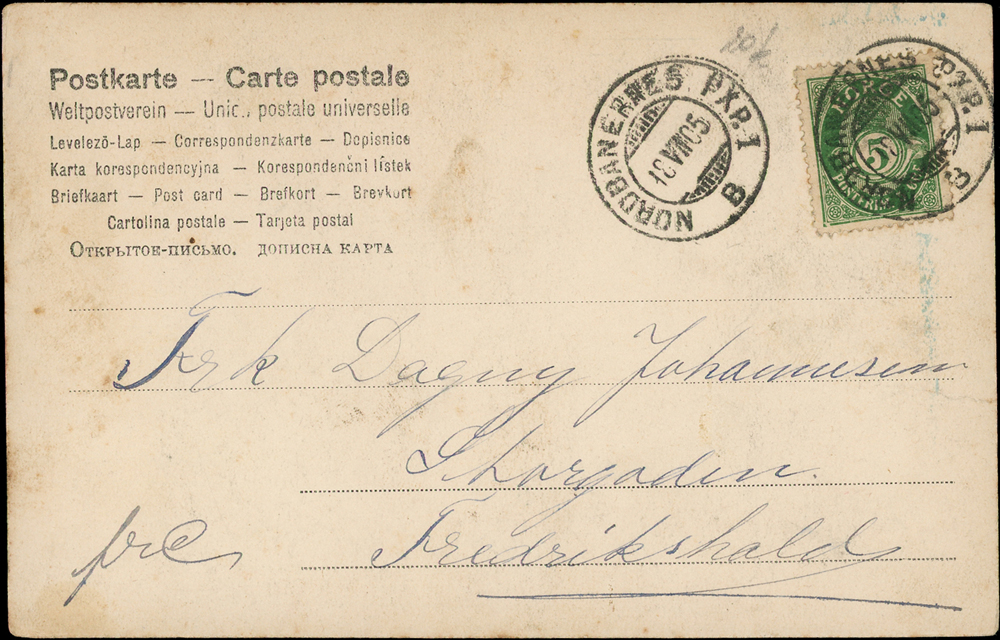 Postkarte — Carte postale
Weltpostverein — Unic., postale universelle
Levelező-Lap — Correspondenzkarte — Dopisnice
Karta korespondencyjna — Korespondenční lístek
Briefkaart — Post card — Brefkort — Brevkort
Cartolina postale — Tarjeta postal
Открытое-письмо. дописна карта
NORDBANERNES PXP. I
18 VII 05
B
NORGE
5
Frk Dagny Johannesen
Storgaden.
Fredrikshald